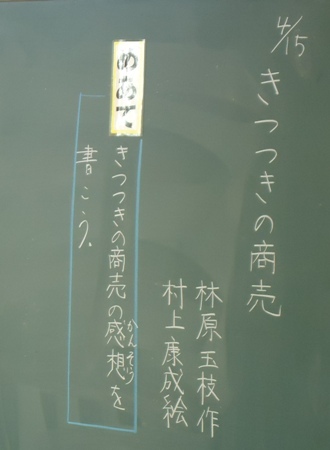 4/15
きつつきの商売
林原玉枝作
村上康成絵
めあて
きつつきの商売の感想を
かんそう
書こう。